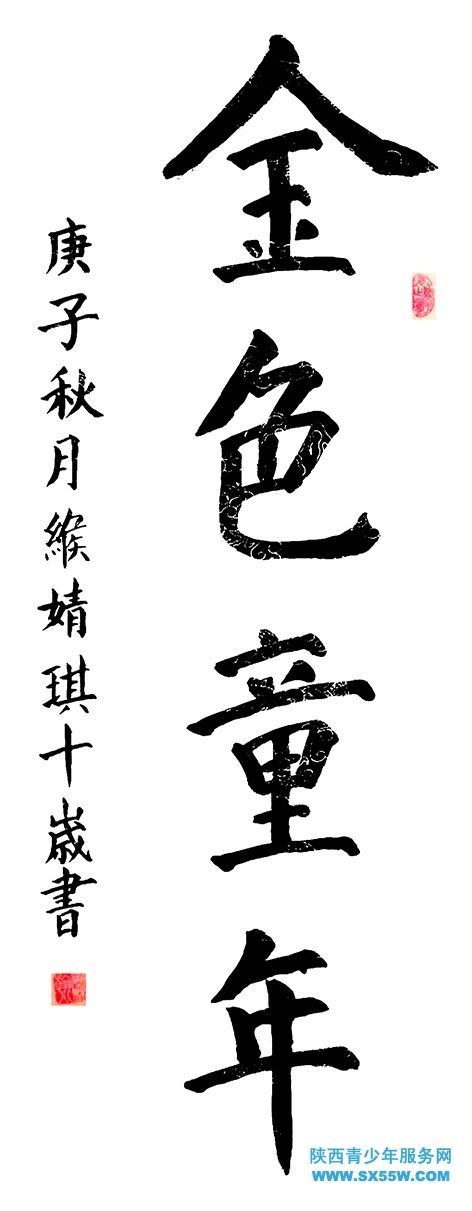 金色童年
庚子秋月緱婧琪十歲書
陕西青少年服务网
WWW.SX55W.COM